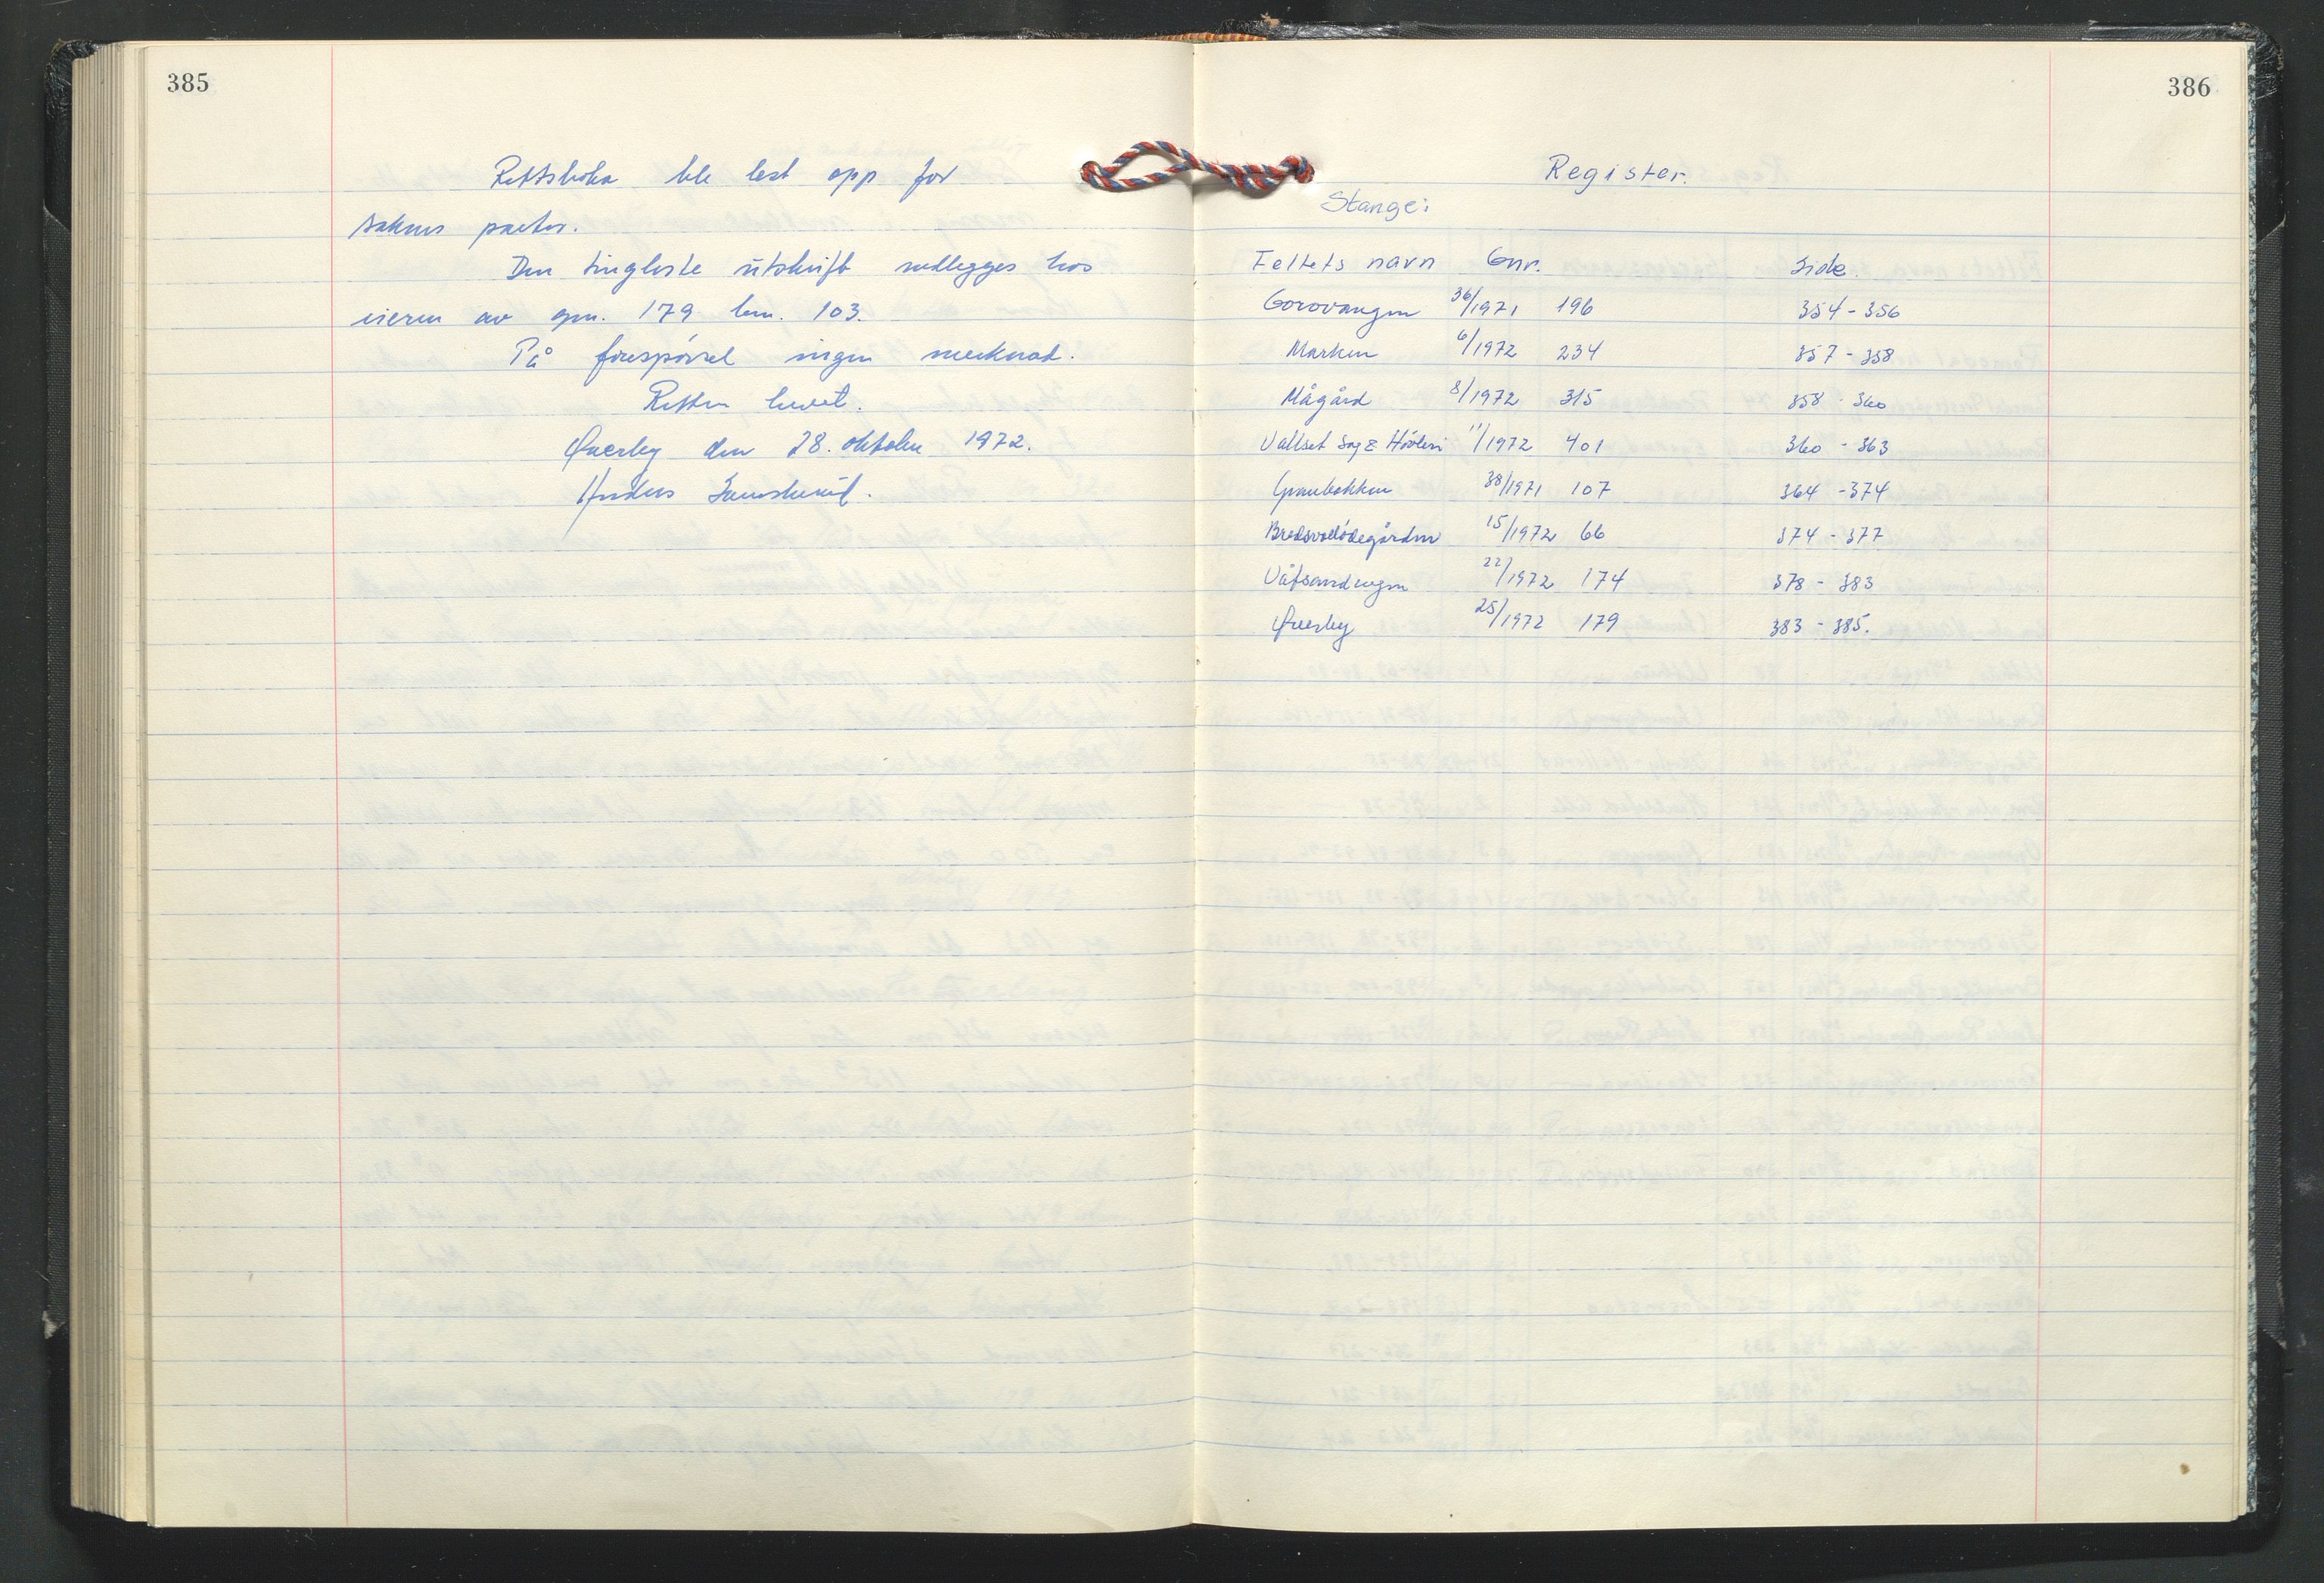 385
Rettsboka ble lest opp for
sakens parter.
Den tinglyste utskrift nedlegges hos
eieren av gnr. 179 bnr. 103.
På forespørsel ingen merknad.
Retten hevet.
Øverby den 28. oktober 1972.
Anders
386
Register.
Stange:
Feltets navn Gnr. Side.
Gorovangen 36/1971 196 354 - 356
Marken 6/1972 234 357 - 358
Mågård 8/1972 315 358 - 360
Vallset Sag & Høvleri 11/1972 401 360 - 363
Granbakken 38/1971 107 364 - 374
Bredsvollødegården 15/1972 66 374 - 377
22/1972 174 378 - 383
Øverby 25/1972 179 383 - 385.